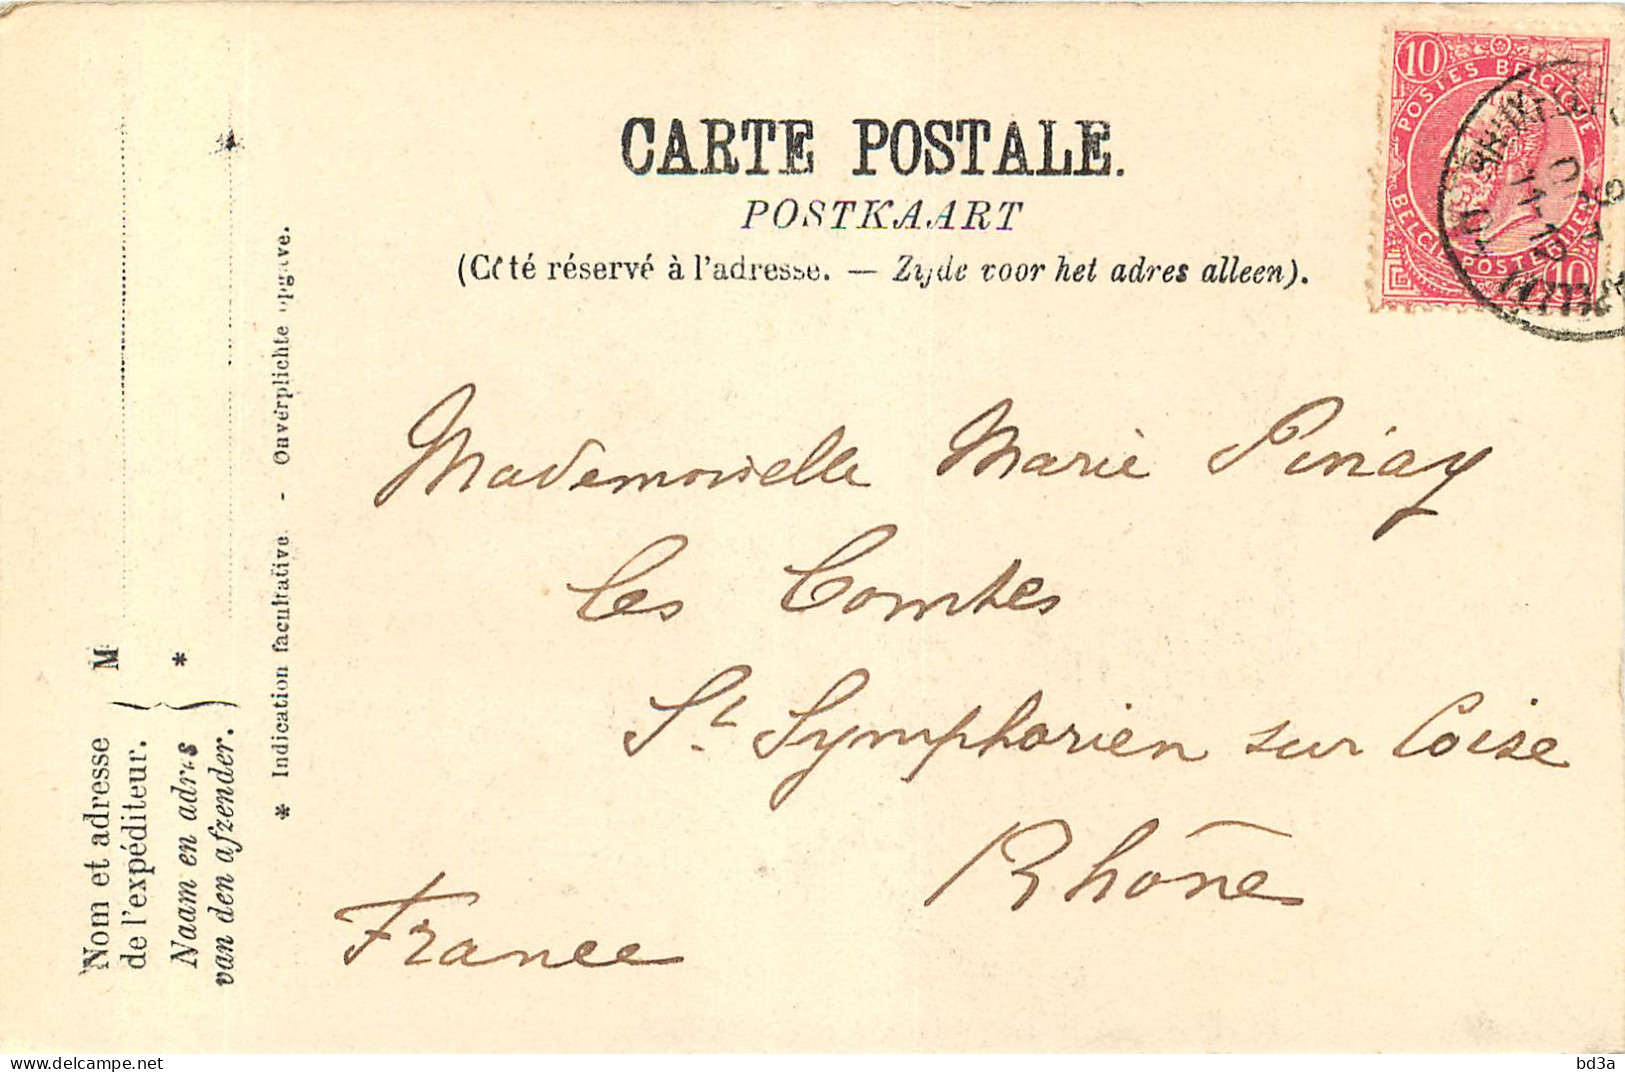 CARTE POSTALE.
POSTKAART
(Côté réservé à l'adresse. — Zijde voor het adres alleen).
10
POSTES BELGIQUE
BELGIË POSTERIJEN
10
Mademoiselle Marie Pinay
les Combes
St Symphorien sur Coise
Rhône
France
Nom et adresse
de l'expéditeur.
M
Naam en adres
van den afzender.
*
* Indication facultative - Onverplichte opgave.
bd3a